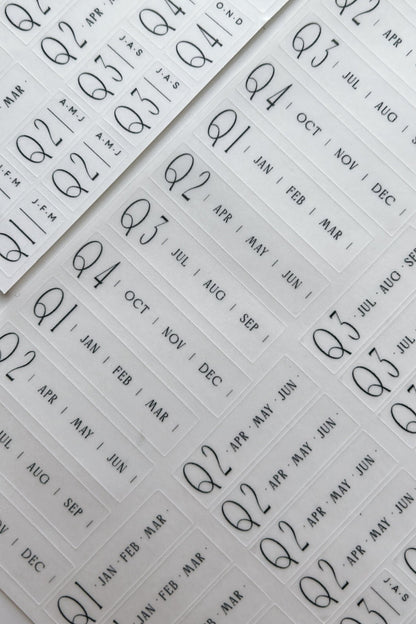 Q2 · APR
Q3 | J·A·S
Q4 | O·N·D
Q4 |
Q3 | J·A·S
Q2 | A·M·J
Q2 | A·M·J
MAR ·
J·F·M
Q1 | J·F·M
Q2 | APR |
Q3 | JUL | AUG |
Q4 | OCT | NOV | DEC |
Q1 | JAN | FEB | MAR |
Q2 | APR | MAY | JUN |
Q3 | JUL | AUG | SEP |
Q4 | OCT | NOV | DEC |
Q1 | JAN | FEB | MAR |
Q2 | APR | MAY | JUN |
JUL | AUG | SEP |
NOV | DEC |
Q3 · JUL · AUG · SEP
Q3 · JUL
Q3
Q2 · APR · MAY · JUN ·
Q2 · APR · MAY · JUN ·
Q2 · APR · MAY · JUN ·
Q2 · APR · MAY
Q1 · JAN · FEB · MAR ·
JAN · FEB · MAR ·
Q3 | J·A·S